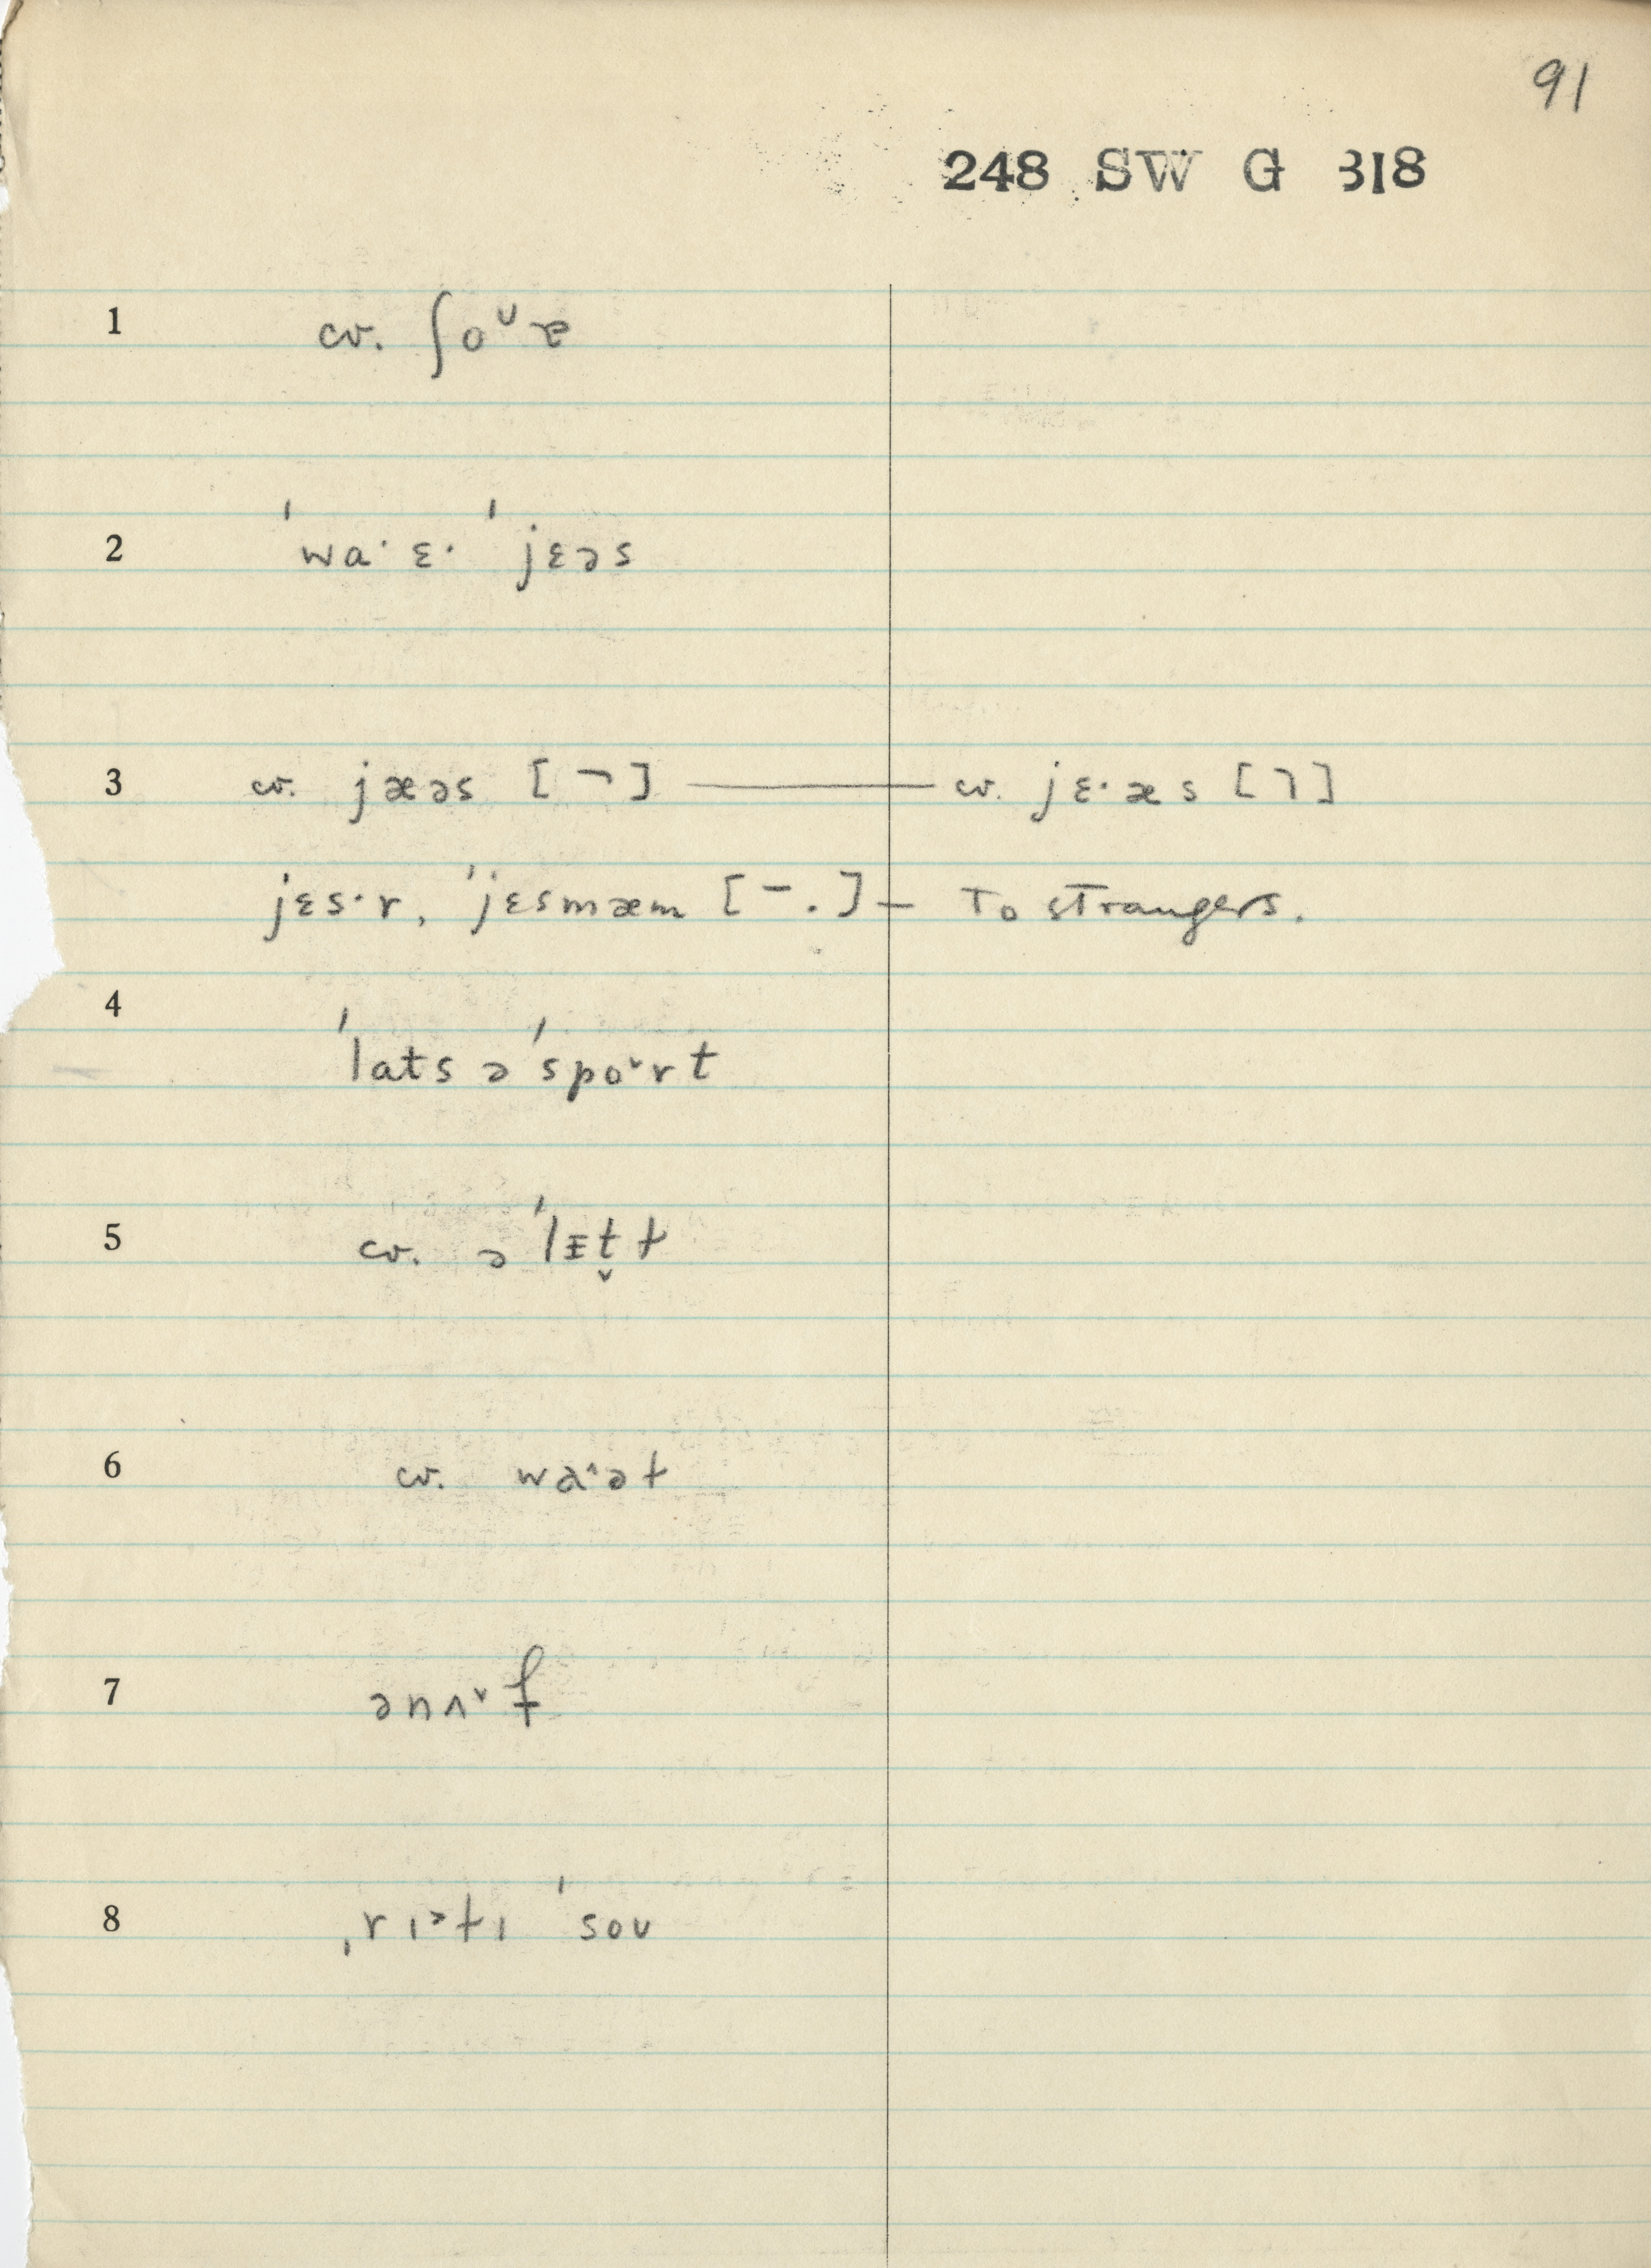 91
248 SW G 318
1 cv. ʃoᴜɚ
2 ˈˈwa· ɛ· ˈˈjɛəs
3 cv. jæəs [¬] — cv. jɛ·æs [ㄱ]
jɛs·r, ˈˈjɛsmæm [- .] — To strangers.
4 ˈˈlats əˈˈspo˅rt
5 cv. əˈˈlɪ̵t̬ɫ
6 cv. wa^əɫ
7 ənʌ˅f
8 ˌrɪ>ɫɪ ˈˈsoʊ